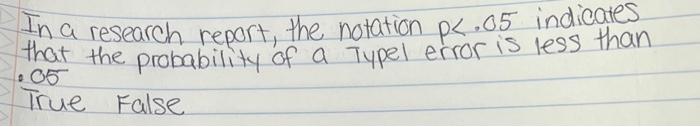 In a research report, the notation p<.05 indicates
that the probability of a Type1 error is less than
.05
True False